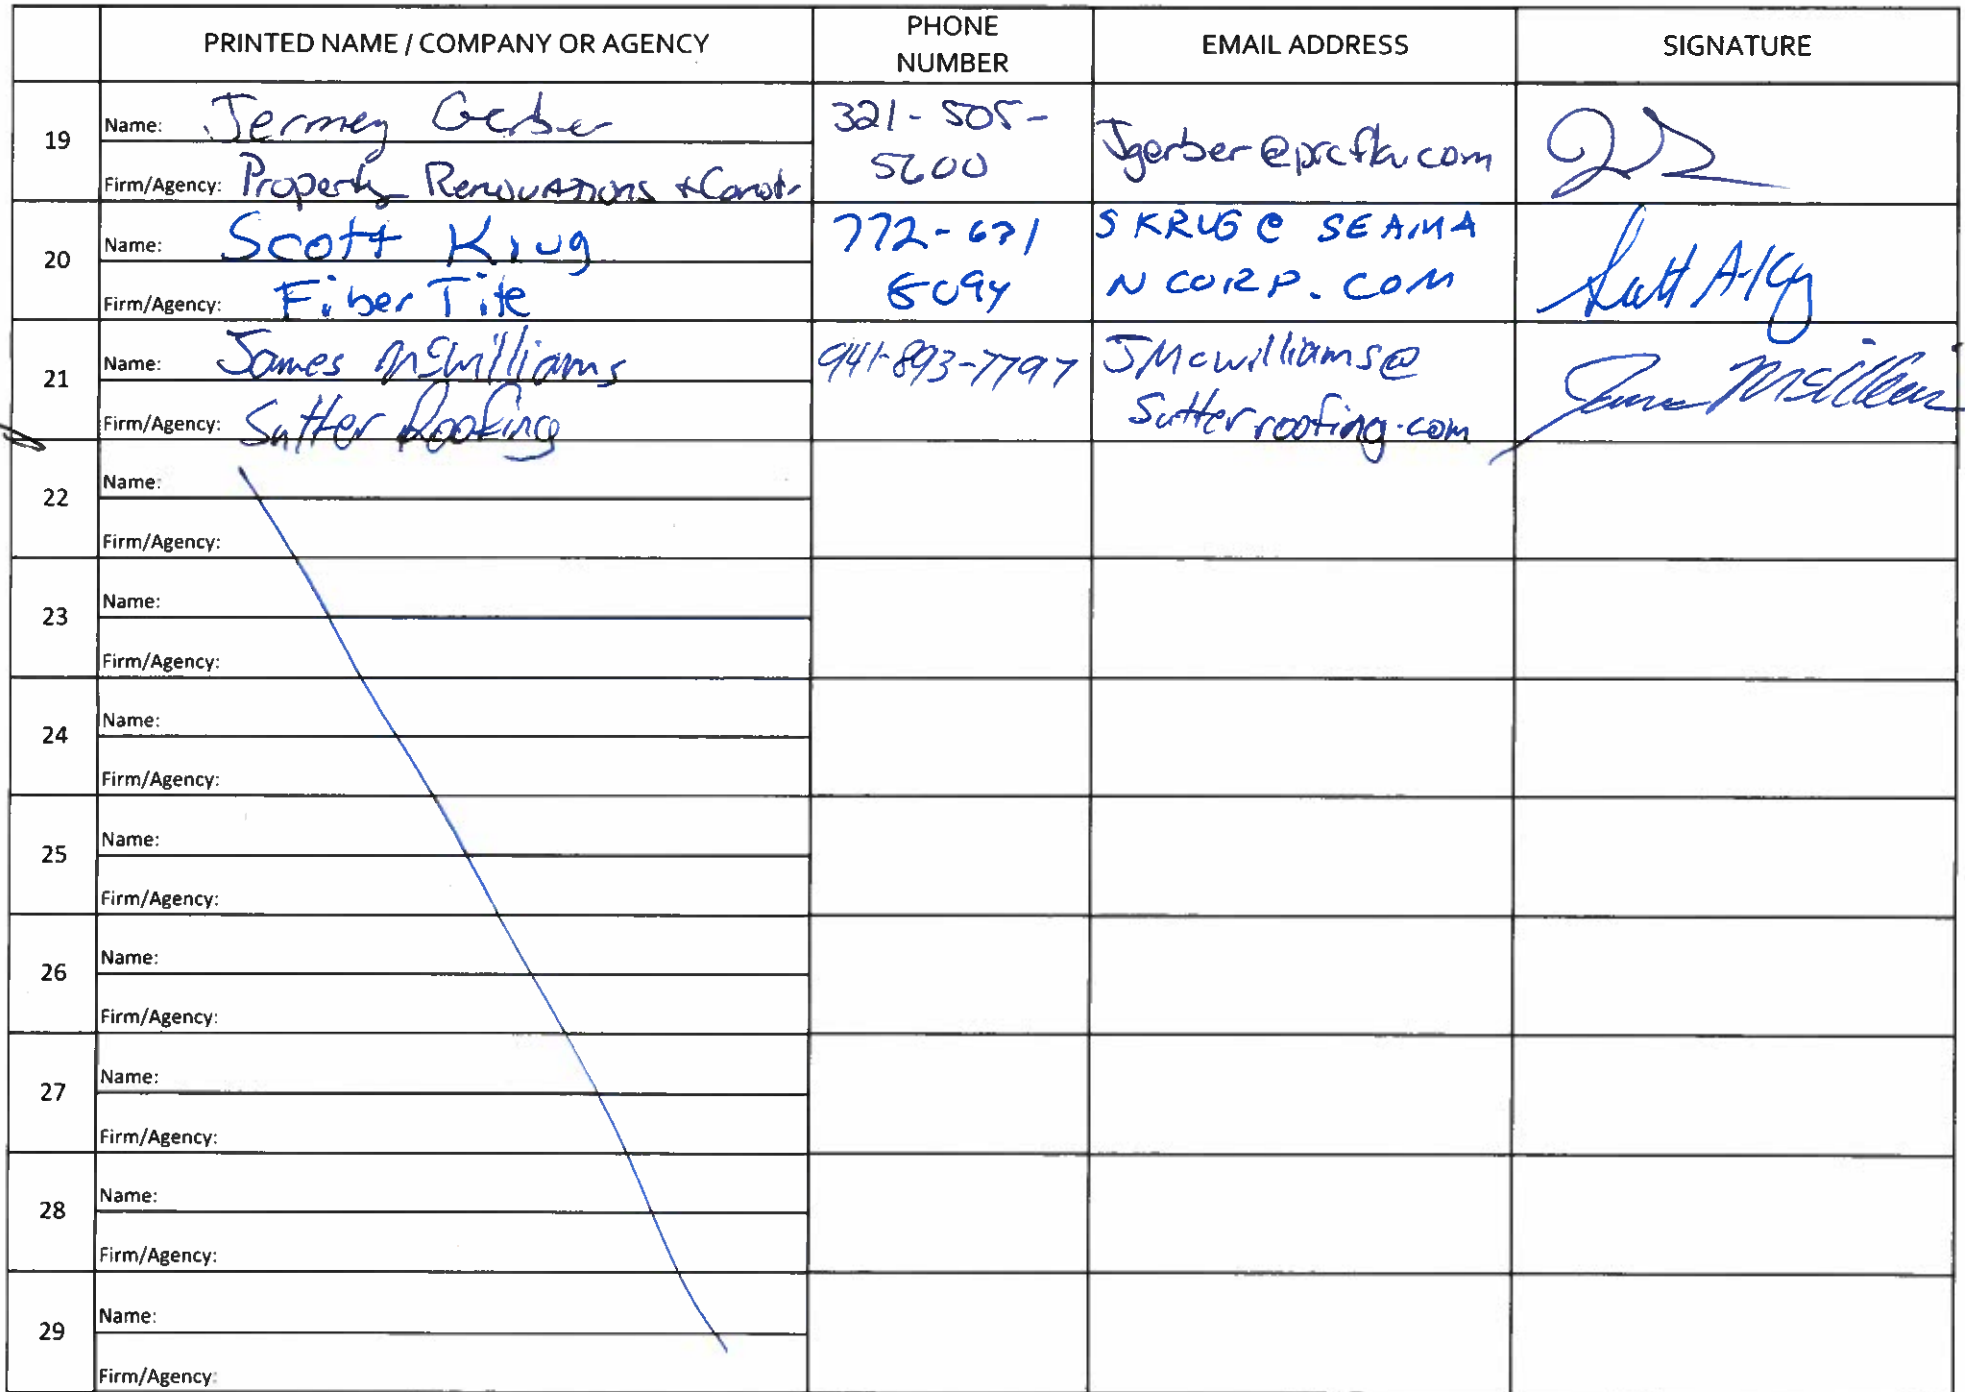 PRINTED NAME / COMPANY OR AGENCY
PHONE
NUMBER
EMAIL ADDRESS
SIGNATURE
19
Name: Jermey Gerber
Firm/Agency: Property Renovations + Constr.
321-505-
5600
Jgerber@prcfla.com
20
Name: Scott Krug
Firm/Agency: FiberTite
772-631
SKRUG@SEAMA
NCORP.COM
21
Name: James McWilliams
Firm/Agency: Sutter Roofing
941-893-7797
JMcwilliams@
Sutterroofing.com
22
Name:
Firm/Agency:
23
Name:
Firm/Agency:
24
Name:
Firm/Agency:
25
Name:
Firm/Agency:
26
Name:
Firm/Agency:
27
Name:
Firm/Agency:
28
Name:
Firm/Agency:
29
Name:
Firm/Agency: